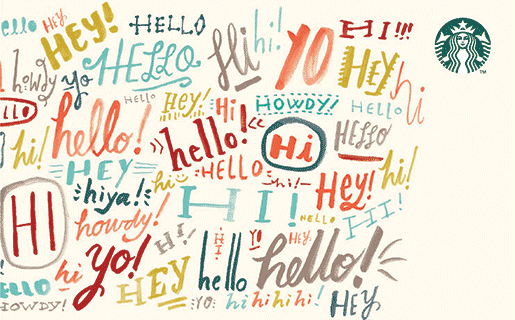 hello
HEY
HEY!
HELLO
Hi
hi!
YO
HI!!!
howdy
yo
HELLO
HEY
hi
HELLO
HEY!
Hi
HOWDY!
HELLO
LLO
hi!
hello!
hello!
Hi
HELLO
HEY
hi
HELLO
hi!
HEY!
hi!
HI
hiya!
HI!
HELLO
HI!
howdy!
HI!
HI
YO
HEY,
hello!
hi
yo!
HEY
hello
ELLO
HOWDY!
YO
hi hi hi hi!
HEY
TM